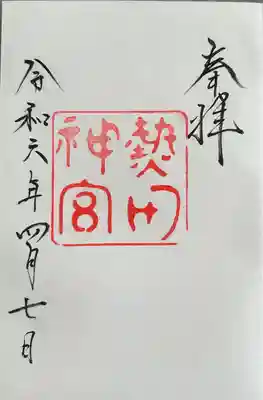 奉拝
熱田
神宮
令和六年四月七日